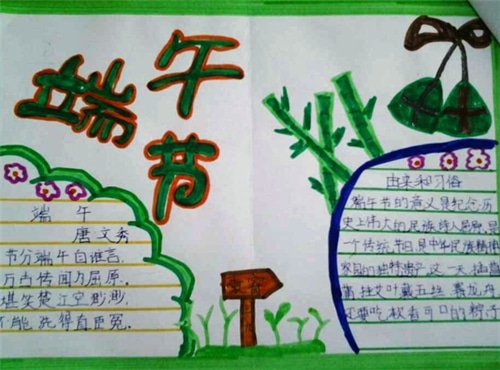 端午节
端 午
唐 文秀
节分端午自谁言,
万古传闻为屈原.
堪笑楚江空渺渺,
不能洗得直臣冤.
由来和习俗
端午节的意义是纪念历
史上伟大的民族诗人屈原,是
一个传统节日,是中华民族精神
家园的独特遗产.这一天
菖蒲挂艾叶戴五丝 赛龙舟
还要吃 可口的粽子